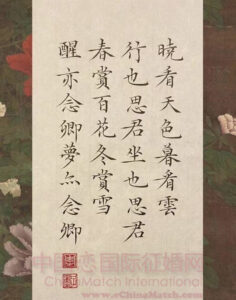 曉看天色暮看雲
行也思君坐也思君
春賞百花冬賞雪
醒亦念卿夢亦念卿
中国恋 国际征婚网
ChinaMatch International
www.eChinaMatch.com